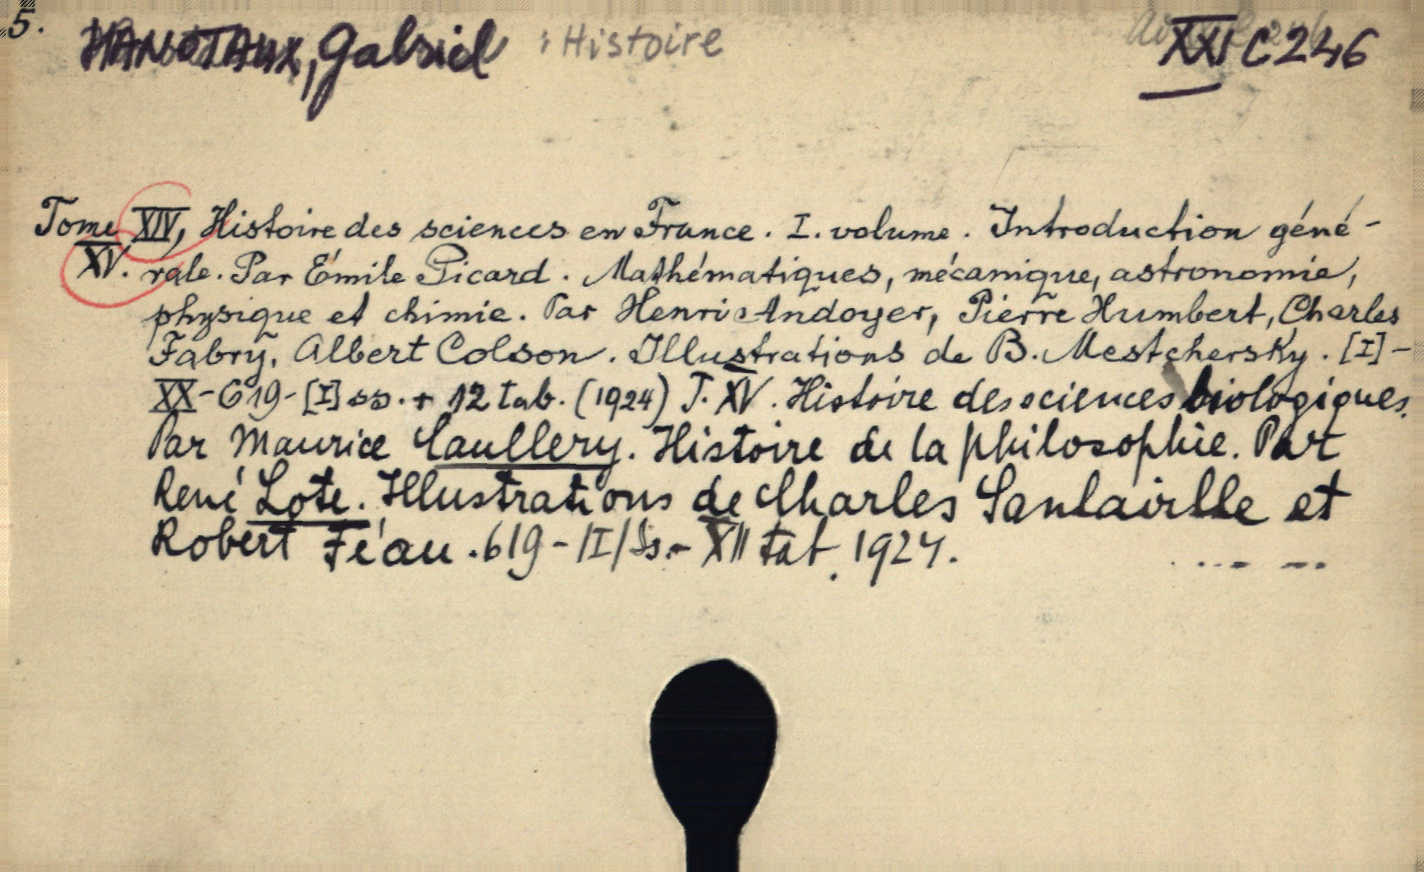 5.
HANOTAUX, Gabriel : Histoire XXI C 246
Tome XIV, Histoire des sciences en France. I. volume. Introduction géné-
XV. rale. Par Émile Picard. Mathématiques, mécanique, astronomie,
physique et chimie. Par Henri Andoyer, Pierre Humbert, Charles
Fabry, Albert Colson. Illustrations de B. Mestchersky. [I]-
XX-619-[I] ss. + 12 tab. (1924) T. XV. Histoire des sciences biologiques.
Par Maurice Caullery. Histoire de la philosophie. Par
René Lote. Illustrations de Charles
et
Robert Féau. 619-/I/ Ss.- XII tab. 1924.